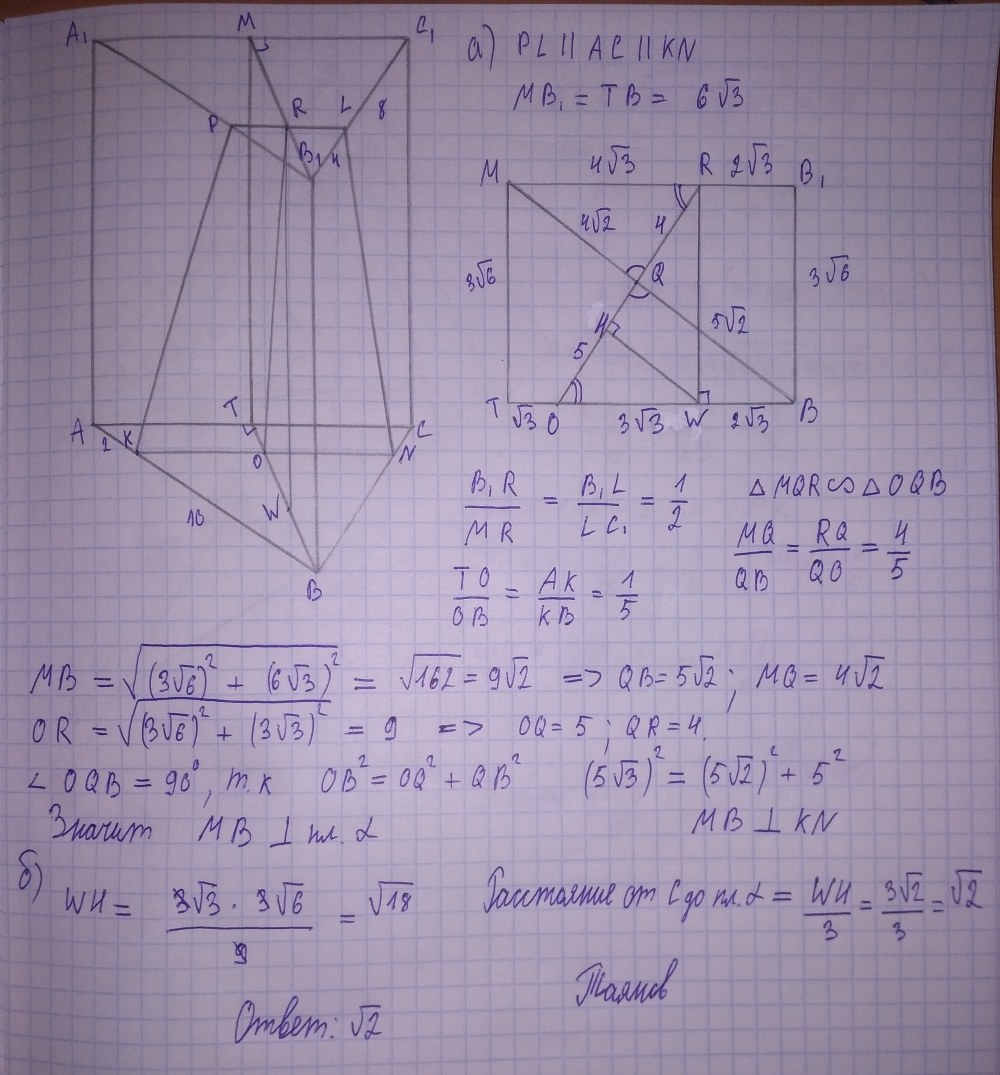 A₁ M C₁
P R L 8
B₁ 4
A 2 K T O C N
10 W
B
а) PL || AC || KN
MB₁ = TB = 6√3
M 4√3 R 2√3 B₁
4√2 4
3√6 Q 3√6
H 5√2
5
T √3 O 3√3 W 2√3 B
B₁R/MR = B₁L/LC₁ = 1/2 △MQR ∽ △OQB
MQ/QB = RQ/QO = 4/5
TO/OB = AK/KB = 1/5
MB = √((3√6)² + (6√3)²) = √162 = 9√2 => QB = 5√2 ; MQ = 4√2
OR = √((3√6)² + (3√3)²) = 9 => OQ = 5 ; QR = 4.
∠ OQB = 90°, т.к OB² = OQ² + QB² (5√3)² = (5√2)² + 5²
Значит MB ⊥ пл. α MB ⊥ KN
б) WH = 3√3 · 3√6 / 9 = √18 Расстояние от C до пл. α = WH/3 = 3√2/3 = √2
Ответ: √2